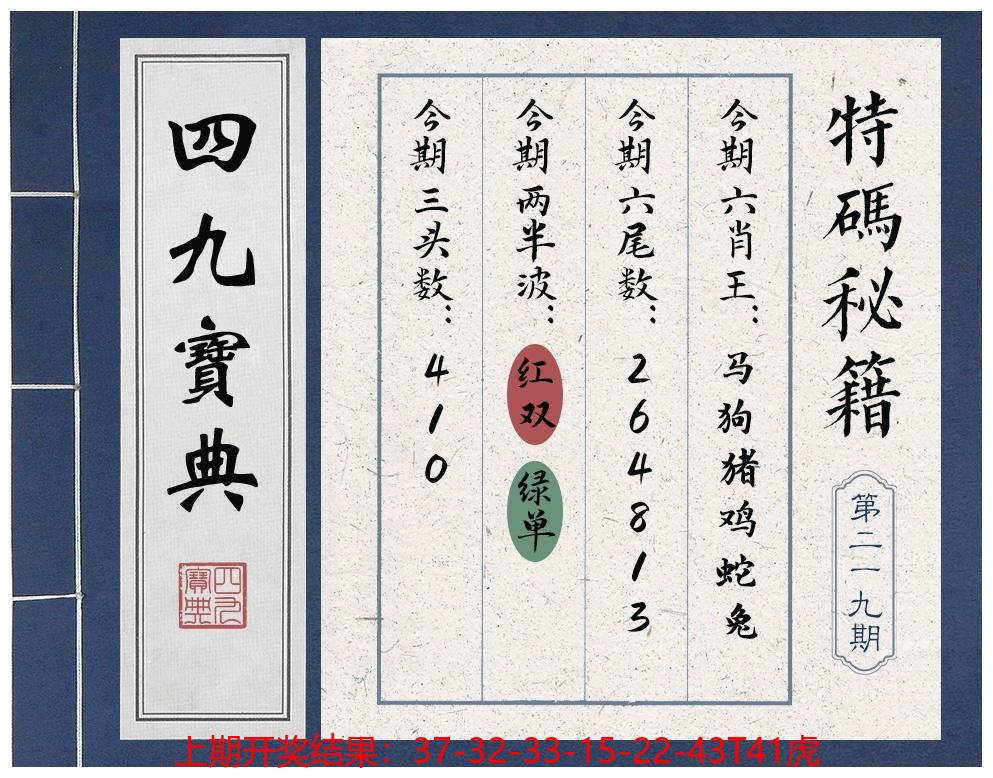 特碼秘籍
第二一九期
今期六肖王：马狗猪鸡蛇兔
今期六尾数：264813
今期两半波：红双 绿单
今期三头数：410
四九寳典
四九寳典
上期开奖结果：37-32-33-15-22-43T41虎